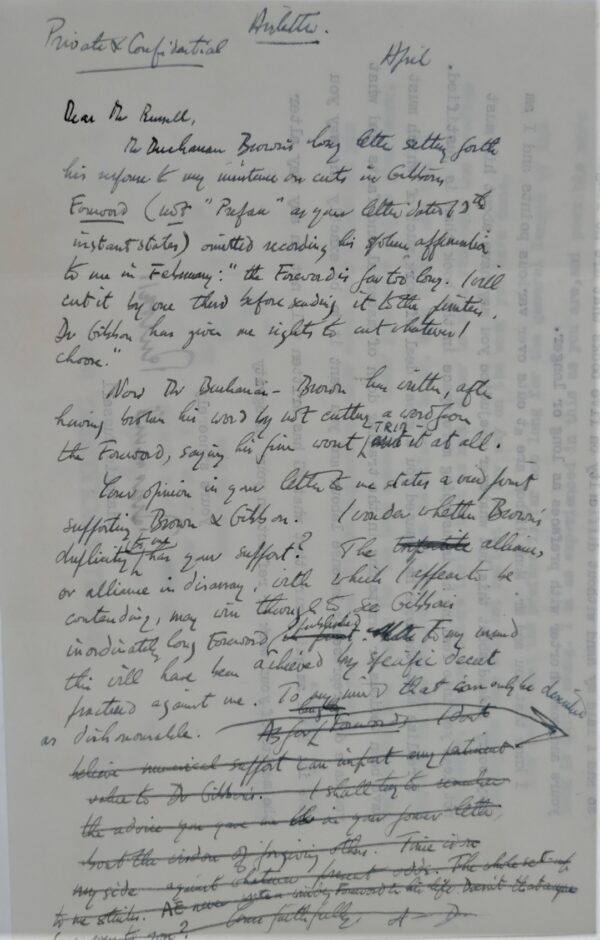 Airletter.
Private & Confidential
April
Dear Mr Russell,
Mr Buchanan Brown's long letter setting forth
his response to my insistence on cuts in Gibbons
Foreword (not "Preface" as your letter dated
instant states) omitted recording his spoken affirmation
to me in February: "the Foreword is far too long. I will
cut it by one third before sending it to the printers.
Dr Gibbon has given me rights to cut whatever I
choose."
Now Mr Buchanan-Brown has written, after
having broken his word by not cutting a word from
the Foreword, saying his firm wont TRIM it at all.
Your opinion in your letter to me states a view point
supporting Brown & Gibbon. I wonder whether Brown's
duplicity to me has your support? The alliance,
or alliance in disarray, with which I appear to be
contending, may win through to see Gibbon's
inordinately long Foreword published. To my mind
this will have been achieved by specific deceit
practised against me. To my mind that can only be described
as dishonourable. As for Foreword, I don't
believe numerical support can impart any
value to Dr Gibbon's. I shall try to remember
the advice you gave me in your letter,
about the wisdom of forgiving others. Time is on
my side against whatever present odds. The whole
to me
to you? Yours faithfully,